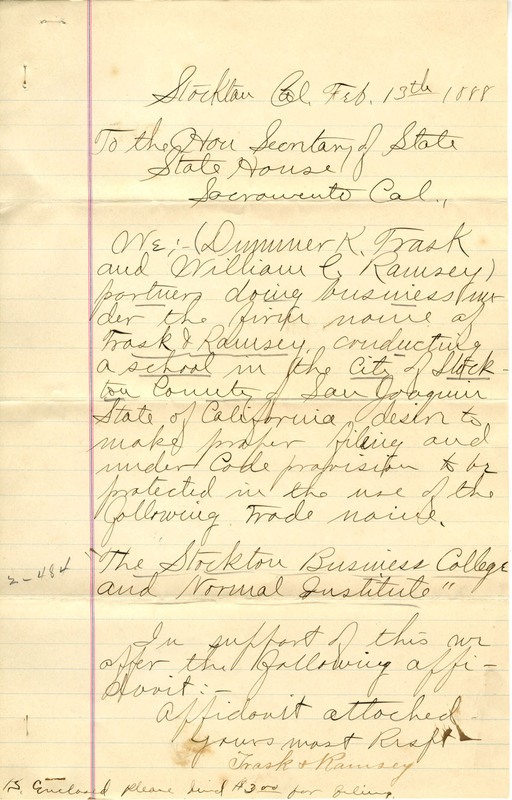 Stockton Cal. Feb. 13th 1888
To the Hon Secretary of State
State House
Sacramento Cal.,
We;- (Dummer K. Trask
and William C. Ramsey)
partners doing business un-
der the firm name of
Trask & Ramsey, conducting
a school in the City of Stock-
ton County of San Joaquin
State of California desire to
make proper filing and
under Code provision to be
protected in the use of the
following Trade name.
"The Stockton Business College
2-484
and Normal Institute"
In support of this we
offer the following affi-
davit:-
Affidavit attached
Yours most Respt
Trask & Ramsey
P.S. Enclosed please find $3.00 for filing